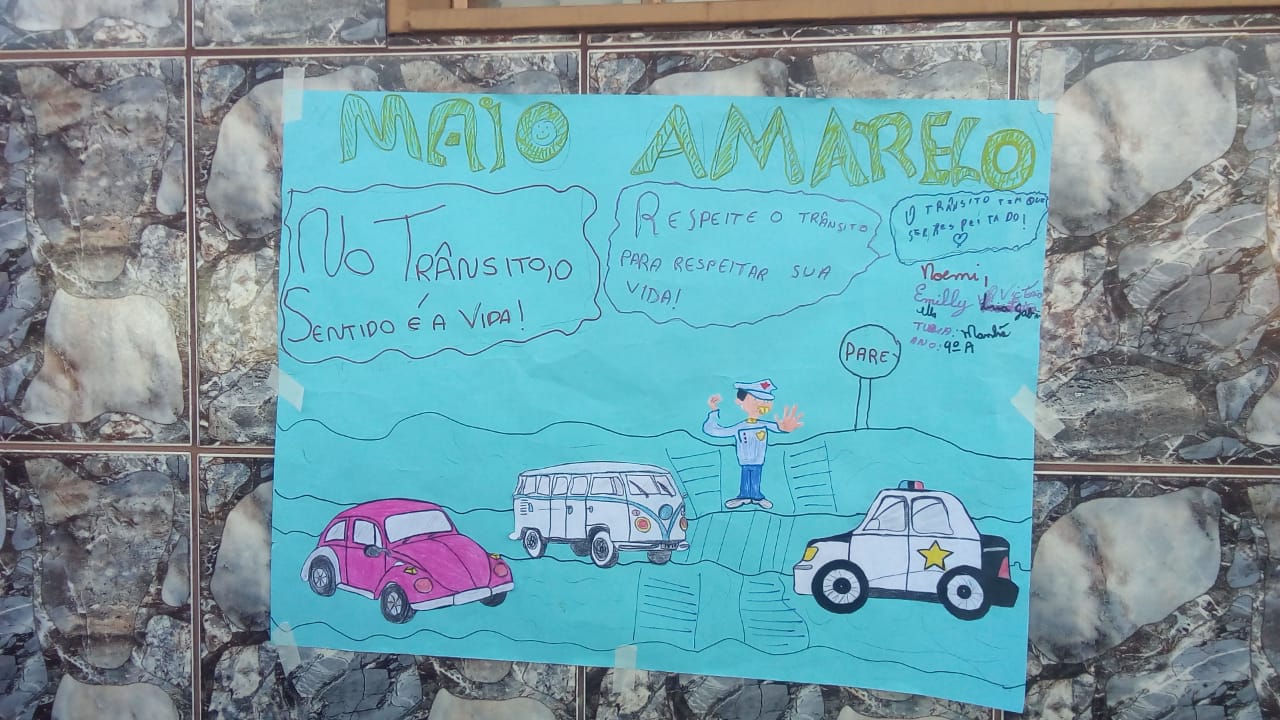 MAIO AMARELO
NO TRÂNSITO, O
SENTIDO É A VIDA!
RESPEITE O TRÂNSITO
PARA RESPEITAR SUA
VIDA!
O TRÂNSITO TEM QUE
SER RESPEITADO!
Noemi,
Emilly
TURMA: Manhã
ANO: 9º A
PARE